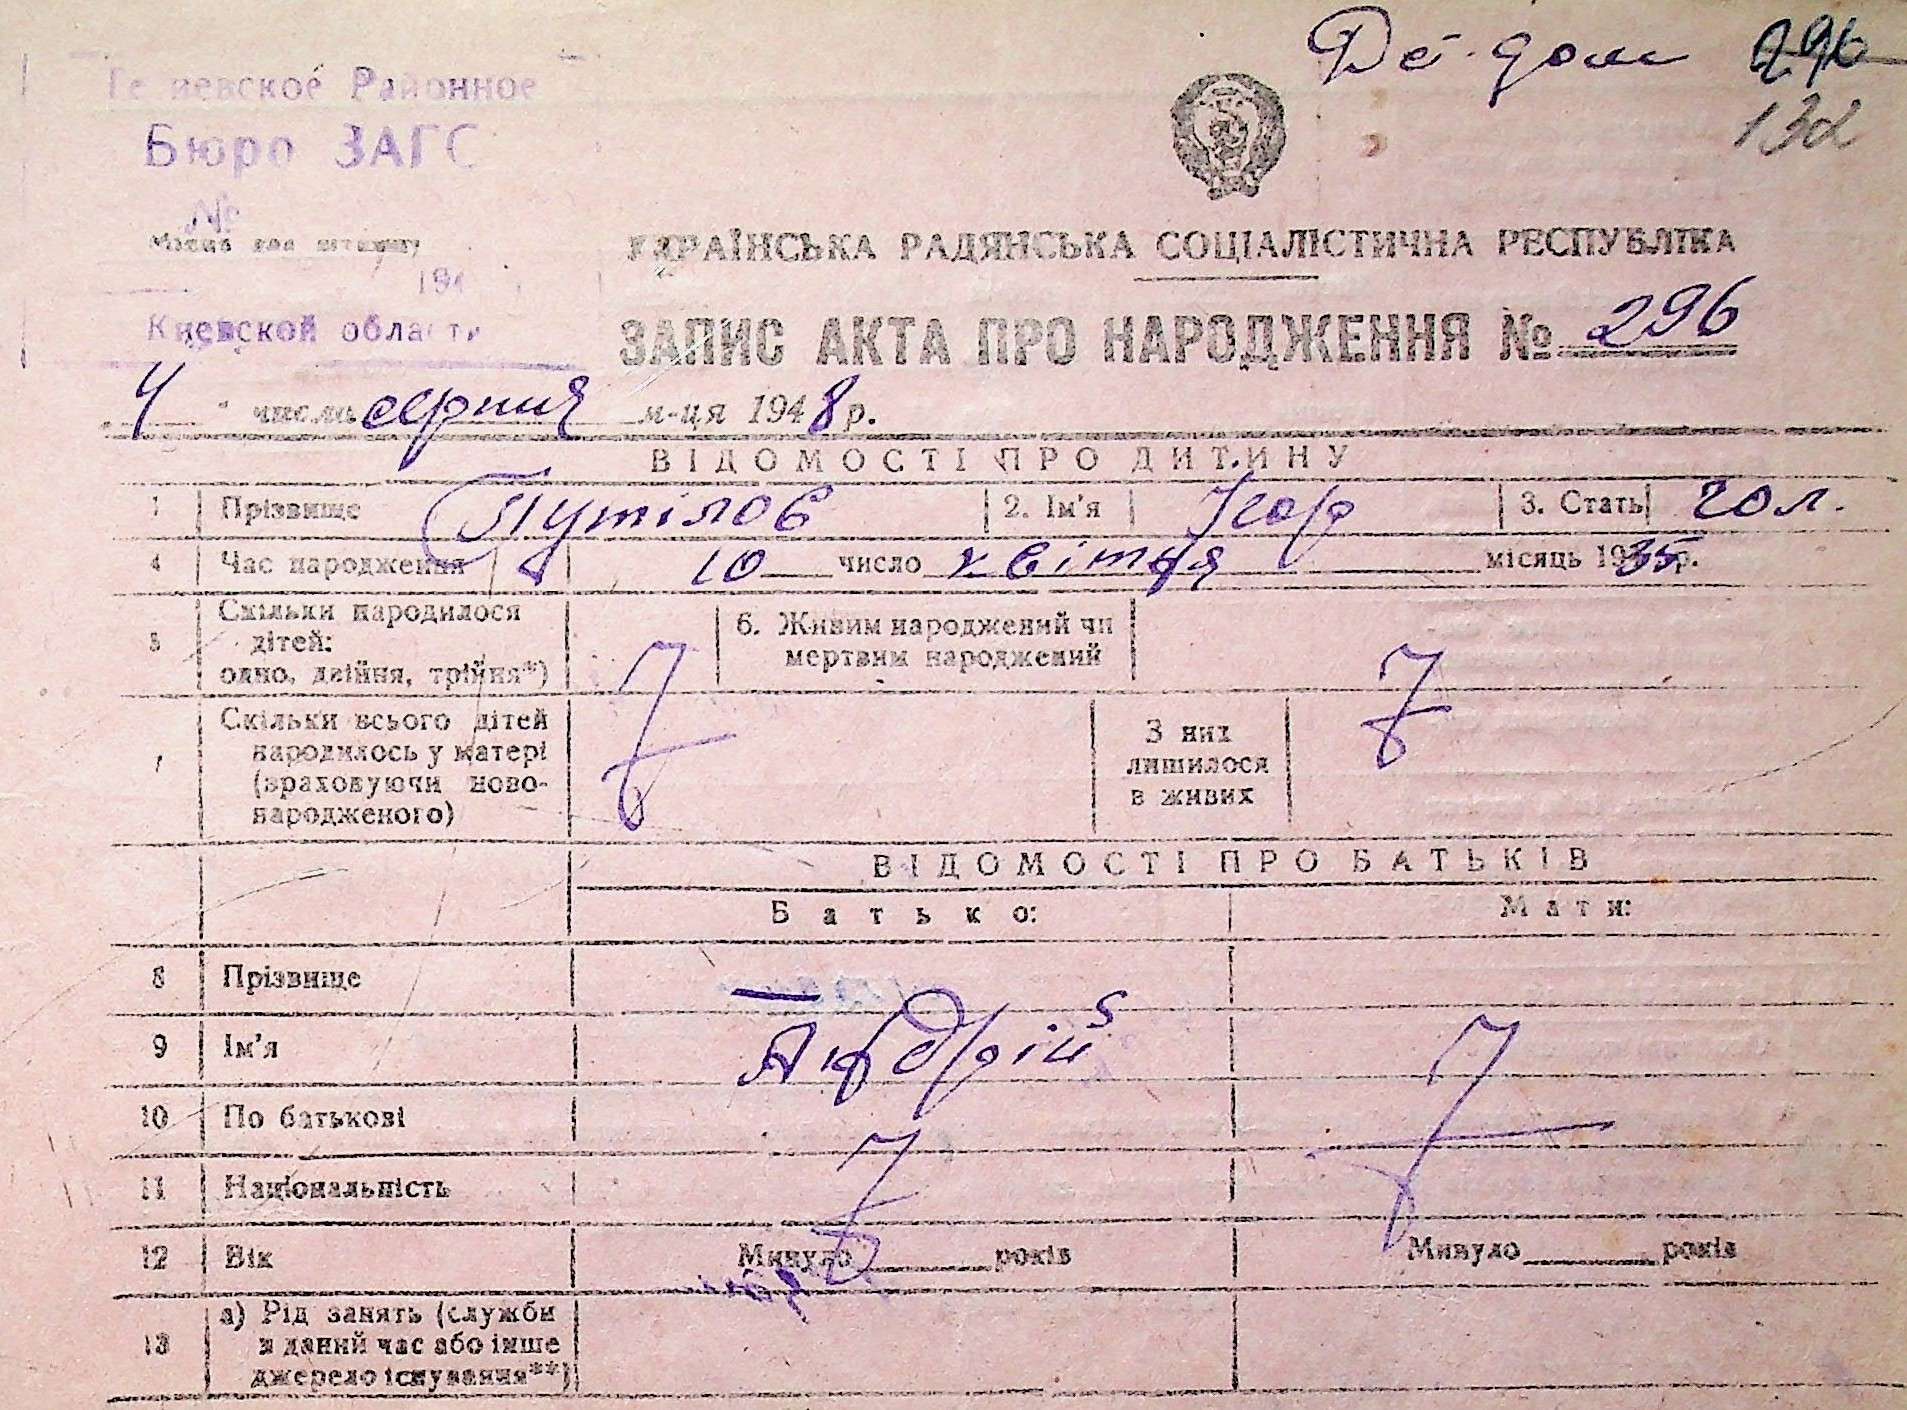 Дет. дом 296
132
Районное
Бюро ЗАГС
№
Місце для штампу
194
Киевской области
УКРАЇНСЬКА РАДЯНСЬКА СОЦІАЛІСТИЧНА РЕСПУБЛІКА
ЗАПИС АКТА ПРО НАРОДЖЕННЯ № 296
4 числа серпня м-ця 1948 р.
ВІДОМОСТІ ПРО ДИТИНУ
1 Прізвище Путілов 2. Ім'я Ігор 3. Стать чол.
4 Час народження 10 число квітня місяць 1935 р.
5 Скільки народилося
дітей:
одно, двійня, трійня*)
6. Живим народжений чи
мертвим народжений
7 Скільки всього дітей
народилось у матері
(враховуючи ново-
народженого)
З них
лишилося
в живих
ВІДОМОСТІ ПРО БАТЬКІВ
Батько: Мати:
8 Прізвище —
9 Ім'я Андрій
10 По батькові
11 Національність
12 Вік Минуло років Минуло років
13 а) Рід занять (служби
в даний час або інше
джерело існування**)